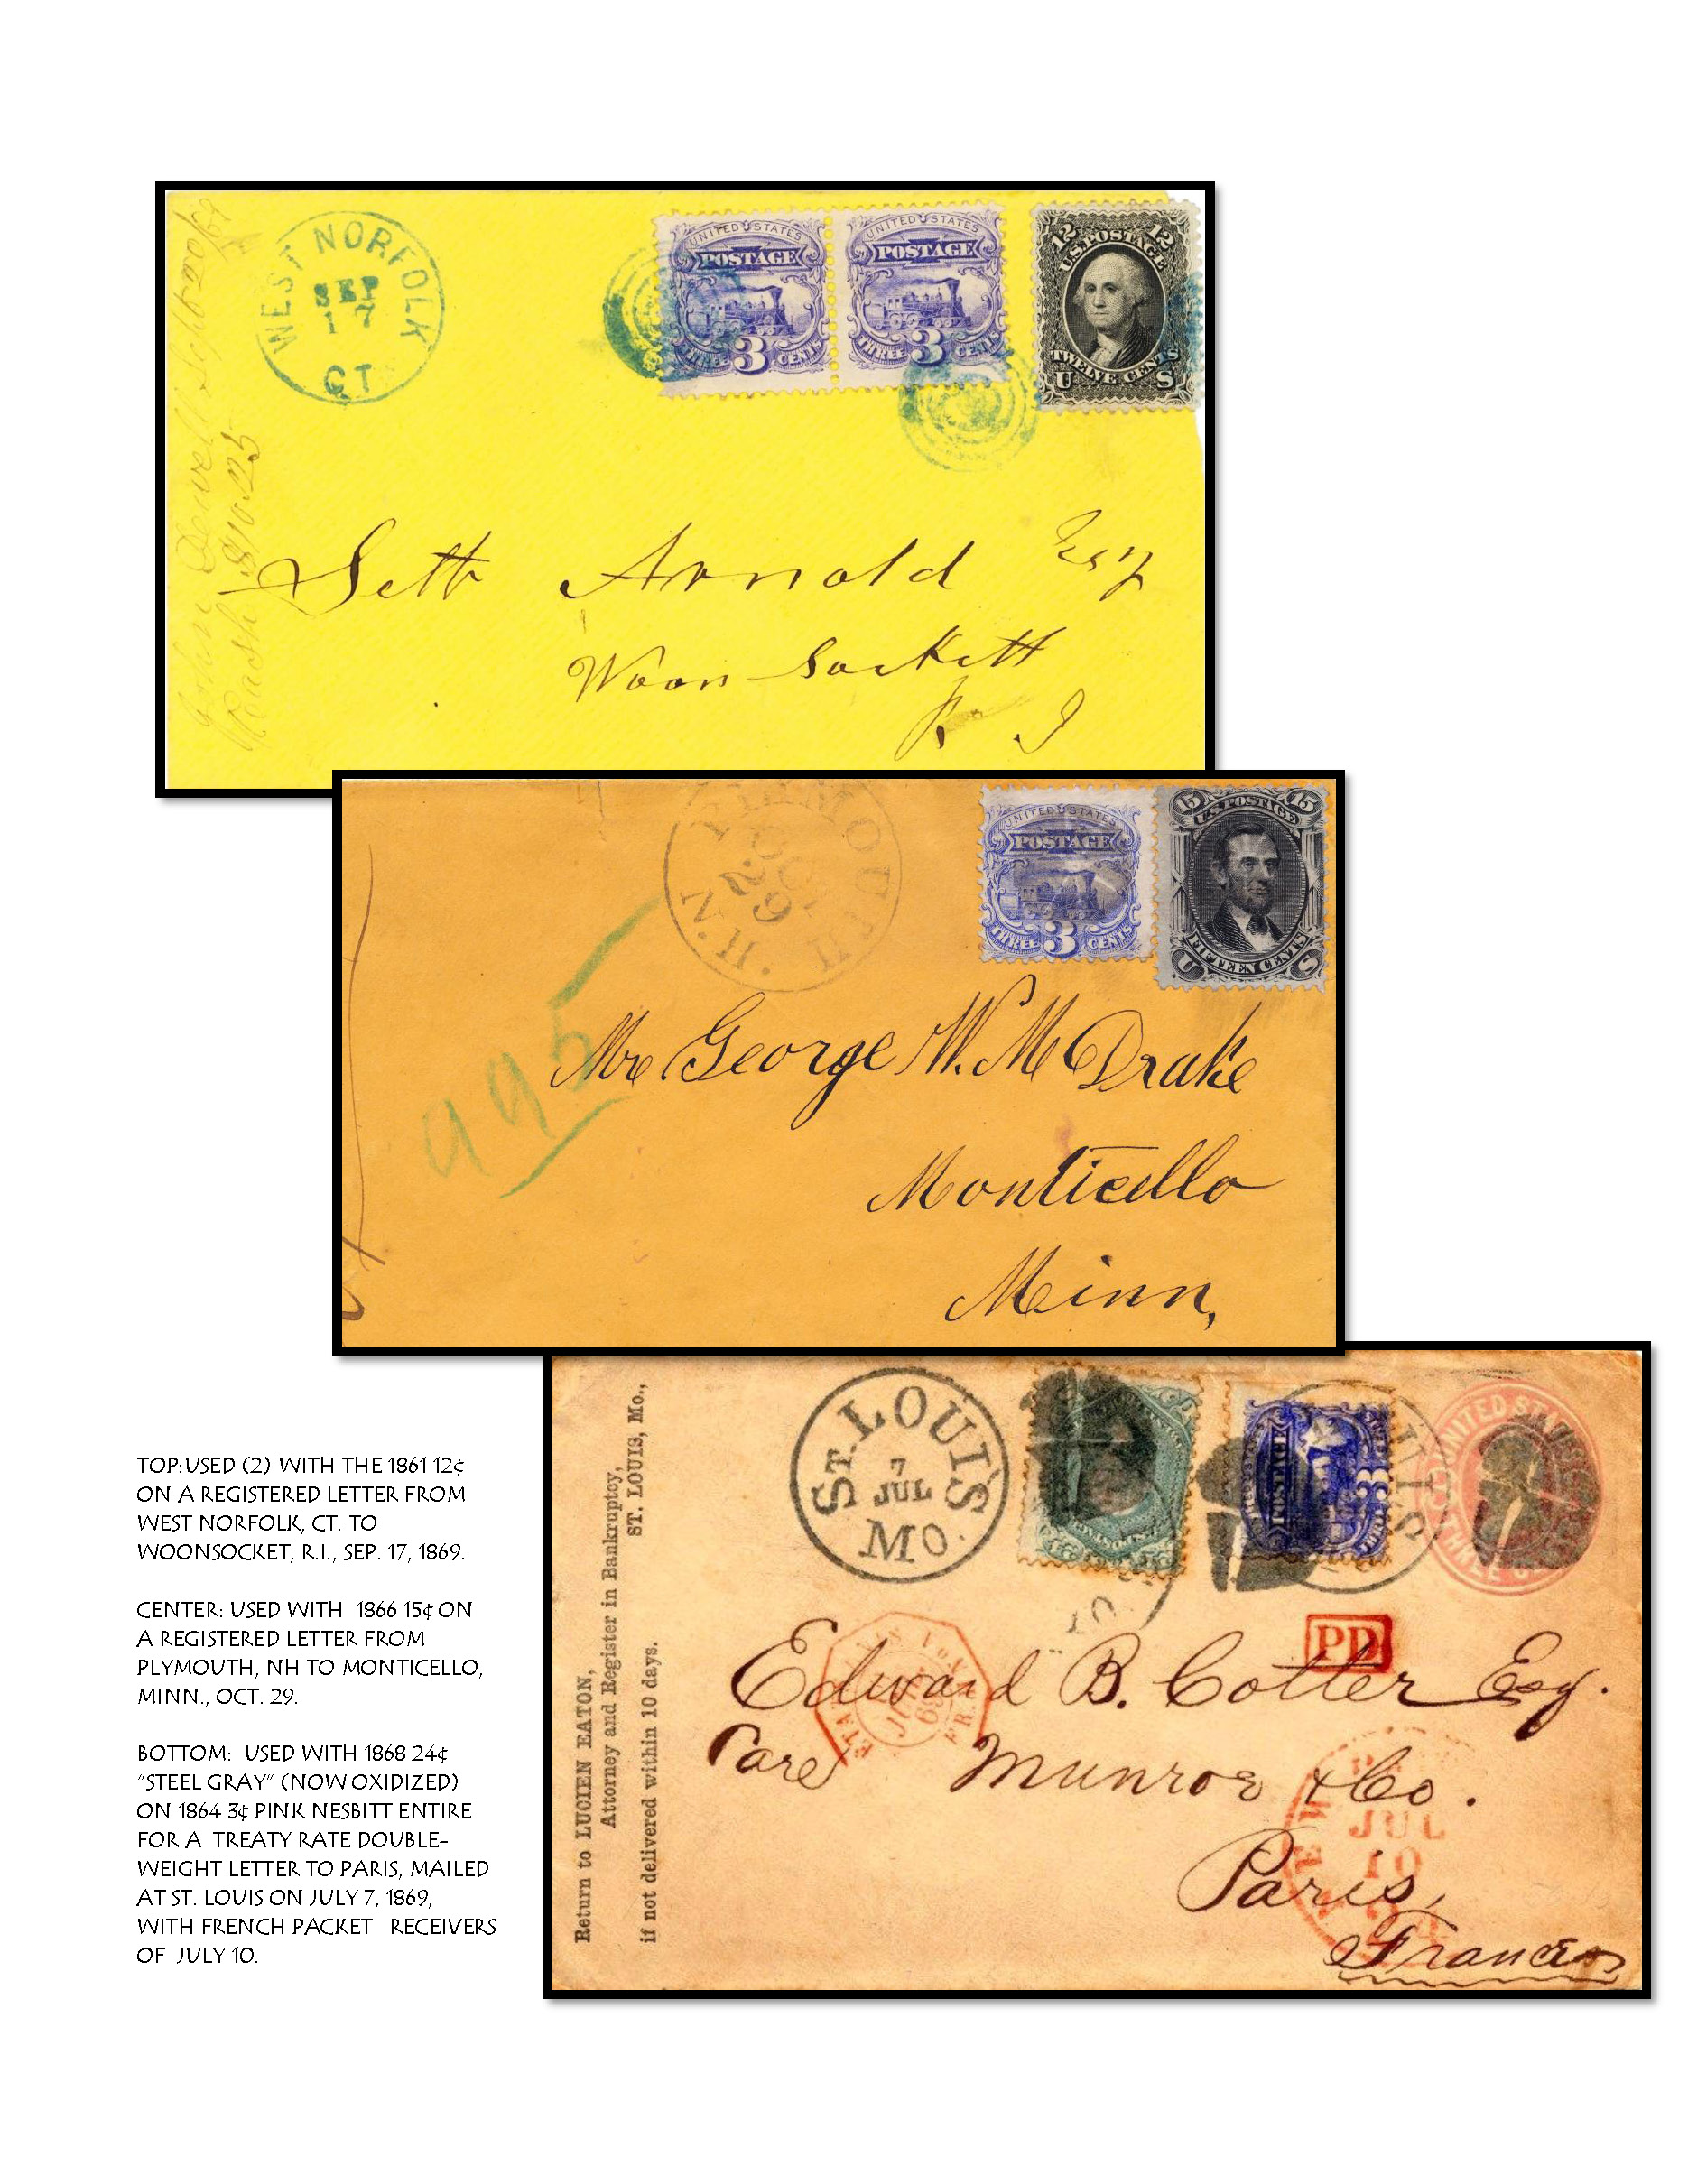 WEST NORFOLK
SEP
17
CT.
UNITED STATES
POSTAGE
THREE 3 CENTS
UNITED STATES
POSTAGE
THREE 3 CENTS
12 12
U.S. POSTAGE
TWELVE CENTS
U S
Seth Arnold Esq
Woonsockett
R I
PLYMOUTH
OCT
29
N.H.
UNITED STATES
POSTAGE
THREE 3 CENTS
15 15
U.S. POSTAGE
FIFTEEN CENTS
U S
995
Mr George W. M Drake
Monticello
Minn,
ST. LOUIS
7
JUL
MO.
POSTAGE
3
UNITED
THREE
Return to LUCIEN EATON,
Attorney and Register in Bankruptcy,
ST. LOUIS, Mo.,
if not delivered within 10 days.
PD
Edward B. Cotter Esq.
Care Munroe & Co.
JUL
10
Paris,
France
TOP:USED (2) WITH THE 1861 12¢
ON A REGISTERED LETTER FROM
WEST NORFOLK, CT. TO
WOONSOCKET, R.I., SEP. 17, 1869.
CENTER: USED WITH 1866 15¢ ON
A REGISTERED LETTER FROM
PLYMOUTH, NH TO MONTICELLO,
MINN., OCT. 29.
BOTTOM: USED WITH 1868 24¢
"STEEL GRAY" (NOW OXIDIZED)
ON 1864 3¢ PINK NESBITT ENTIRE
FOR A TREATY RATE DOUBLE-
WEIGHT LETTER TO PARIS, MAILED
AT ST. LOUIS ON JULY 7, 1869,
WITH FRENCH PACKET RECEIVERS
OF JULY 10.